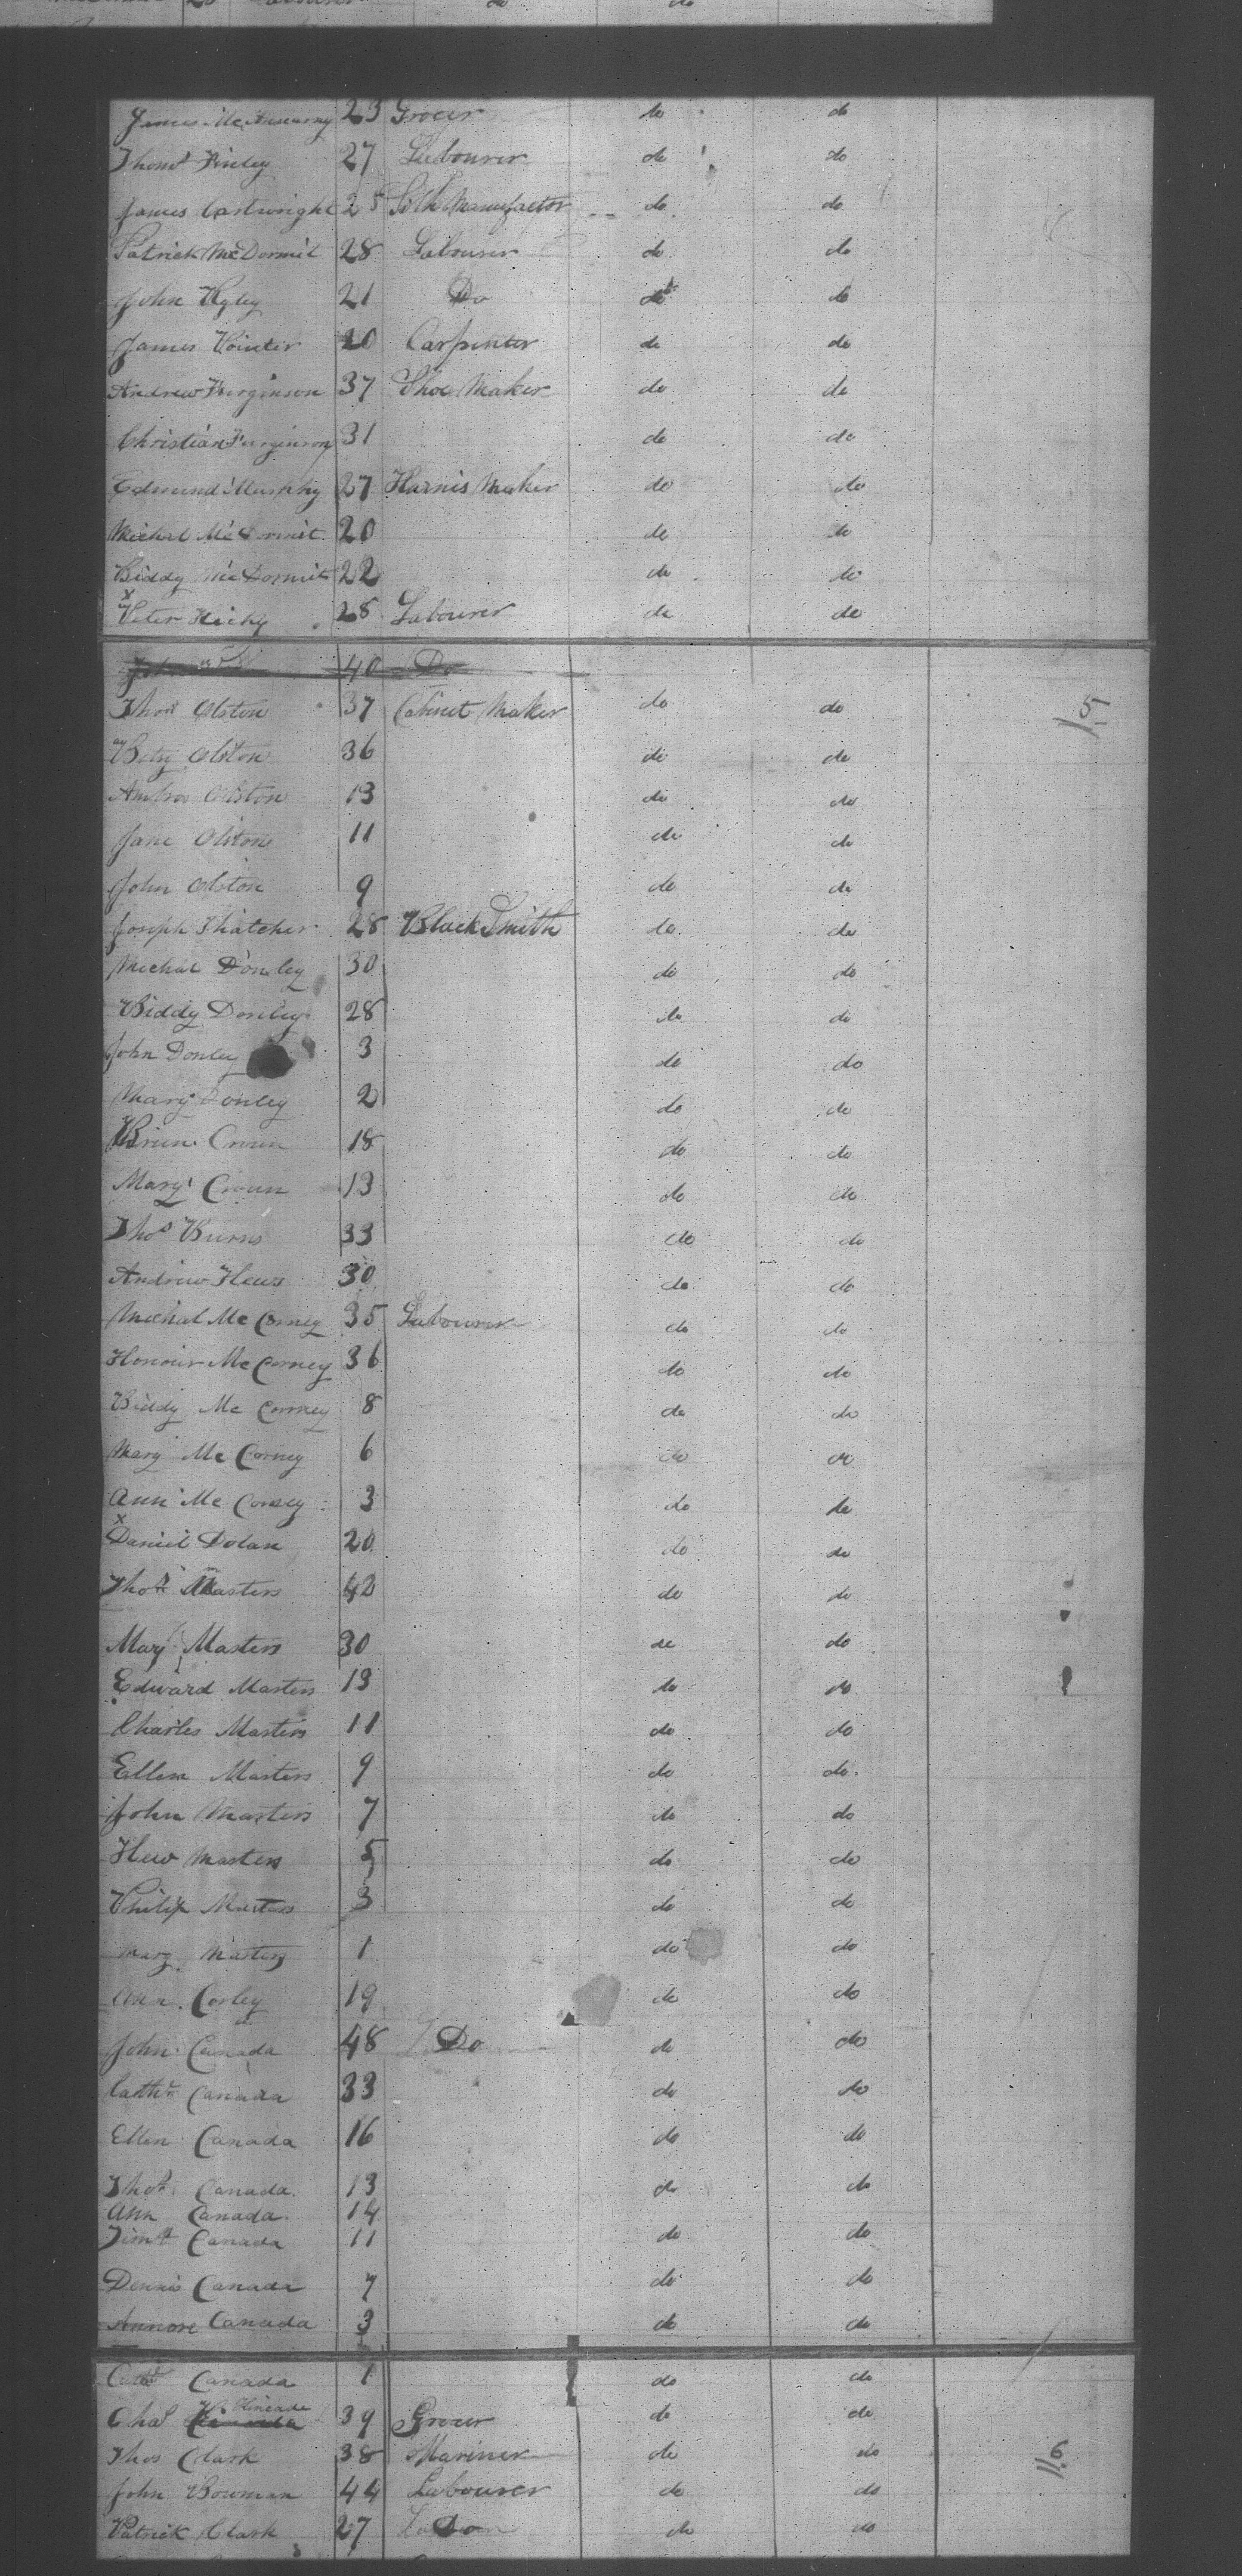 do do
James McAnurny 23 Grocer do do
Thoms Finley 27 Labourer do do
James Cartwright 25 Silk Manufactor do do
Patrick McDormit 28 Labourer do do
John 21 Do do do
James 20 Carpenter do do
Andrew Furginson 37 Shoe Maker do do
Christian Furginson 31 do do
Edmund Murphy 27 Harnis Maker do do
Michal McDormit 20 do do
Biddy McDormit 22 do do
x
Peter Hicky 28 Labourer do do
40 Do
Thos Olston 37 Cabinet Maker do do 15
Betsy Olston 36 do do
Ambros Olston 13 do do
Jane Olston 11 do do
John Olston 9 do do
Joseph Thatcher 28 Black Smith do do
Michal Donley 30 do do
Biddy Donley 28 do do
John Donley 3 do do
Mary Donley 2 do do
Brien Croun 18 do do
Mary Croun 13 do do
Thos Burns 33 do do
Andrew Hews 30 do do
Michal McCorney 35 Labourer do do
Honour McCorney 36 do do
Biddy McCorney 8 do do
Mary McCorney 6 do do
Ann McCorney 3 do do
x
Daniel Dolan 20 do do
Thos Masters 42 do do
Mary Masters 30 do do
Edward Masters 13 do do
Charles Masters 11 do do
Ellen Masters 9 do do
John Masters 7 do do
Hew Masters 5 do do
Philip Masters 3 do do
Mary Masters 1 do do
Ann Corley 19 do do
John Canada 48 Do do do
Cathr Canada 33 do do
Ellen Canada 16 do do
Thos Canada 13 do do
Ann Canada 14
Timt Canada 11 do do
Dennis Canada 7 do do
Annore Canada 3 do do
Canada 1 do do
Chas 39 Grocer do do
Thos Clark 38 Mariner do do 116
John Bowman 44 Labourer do do
Patrick Clark 27 Do do do